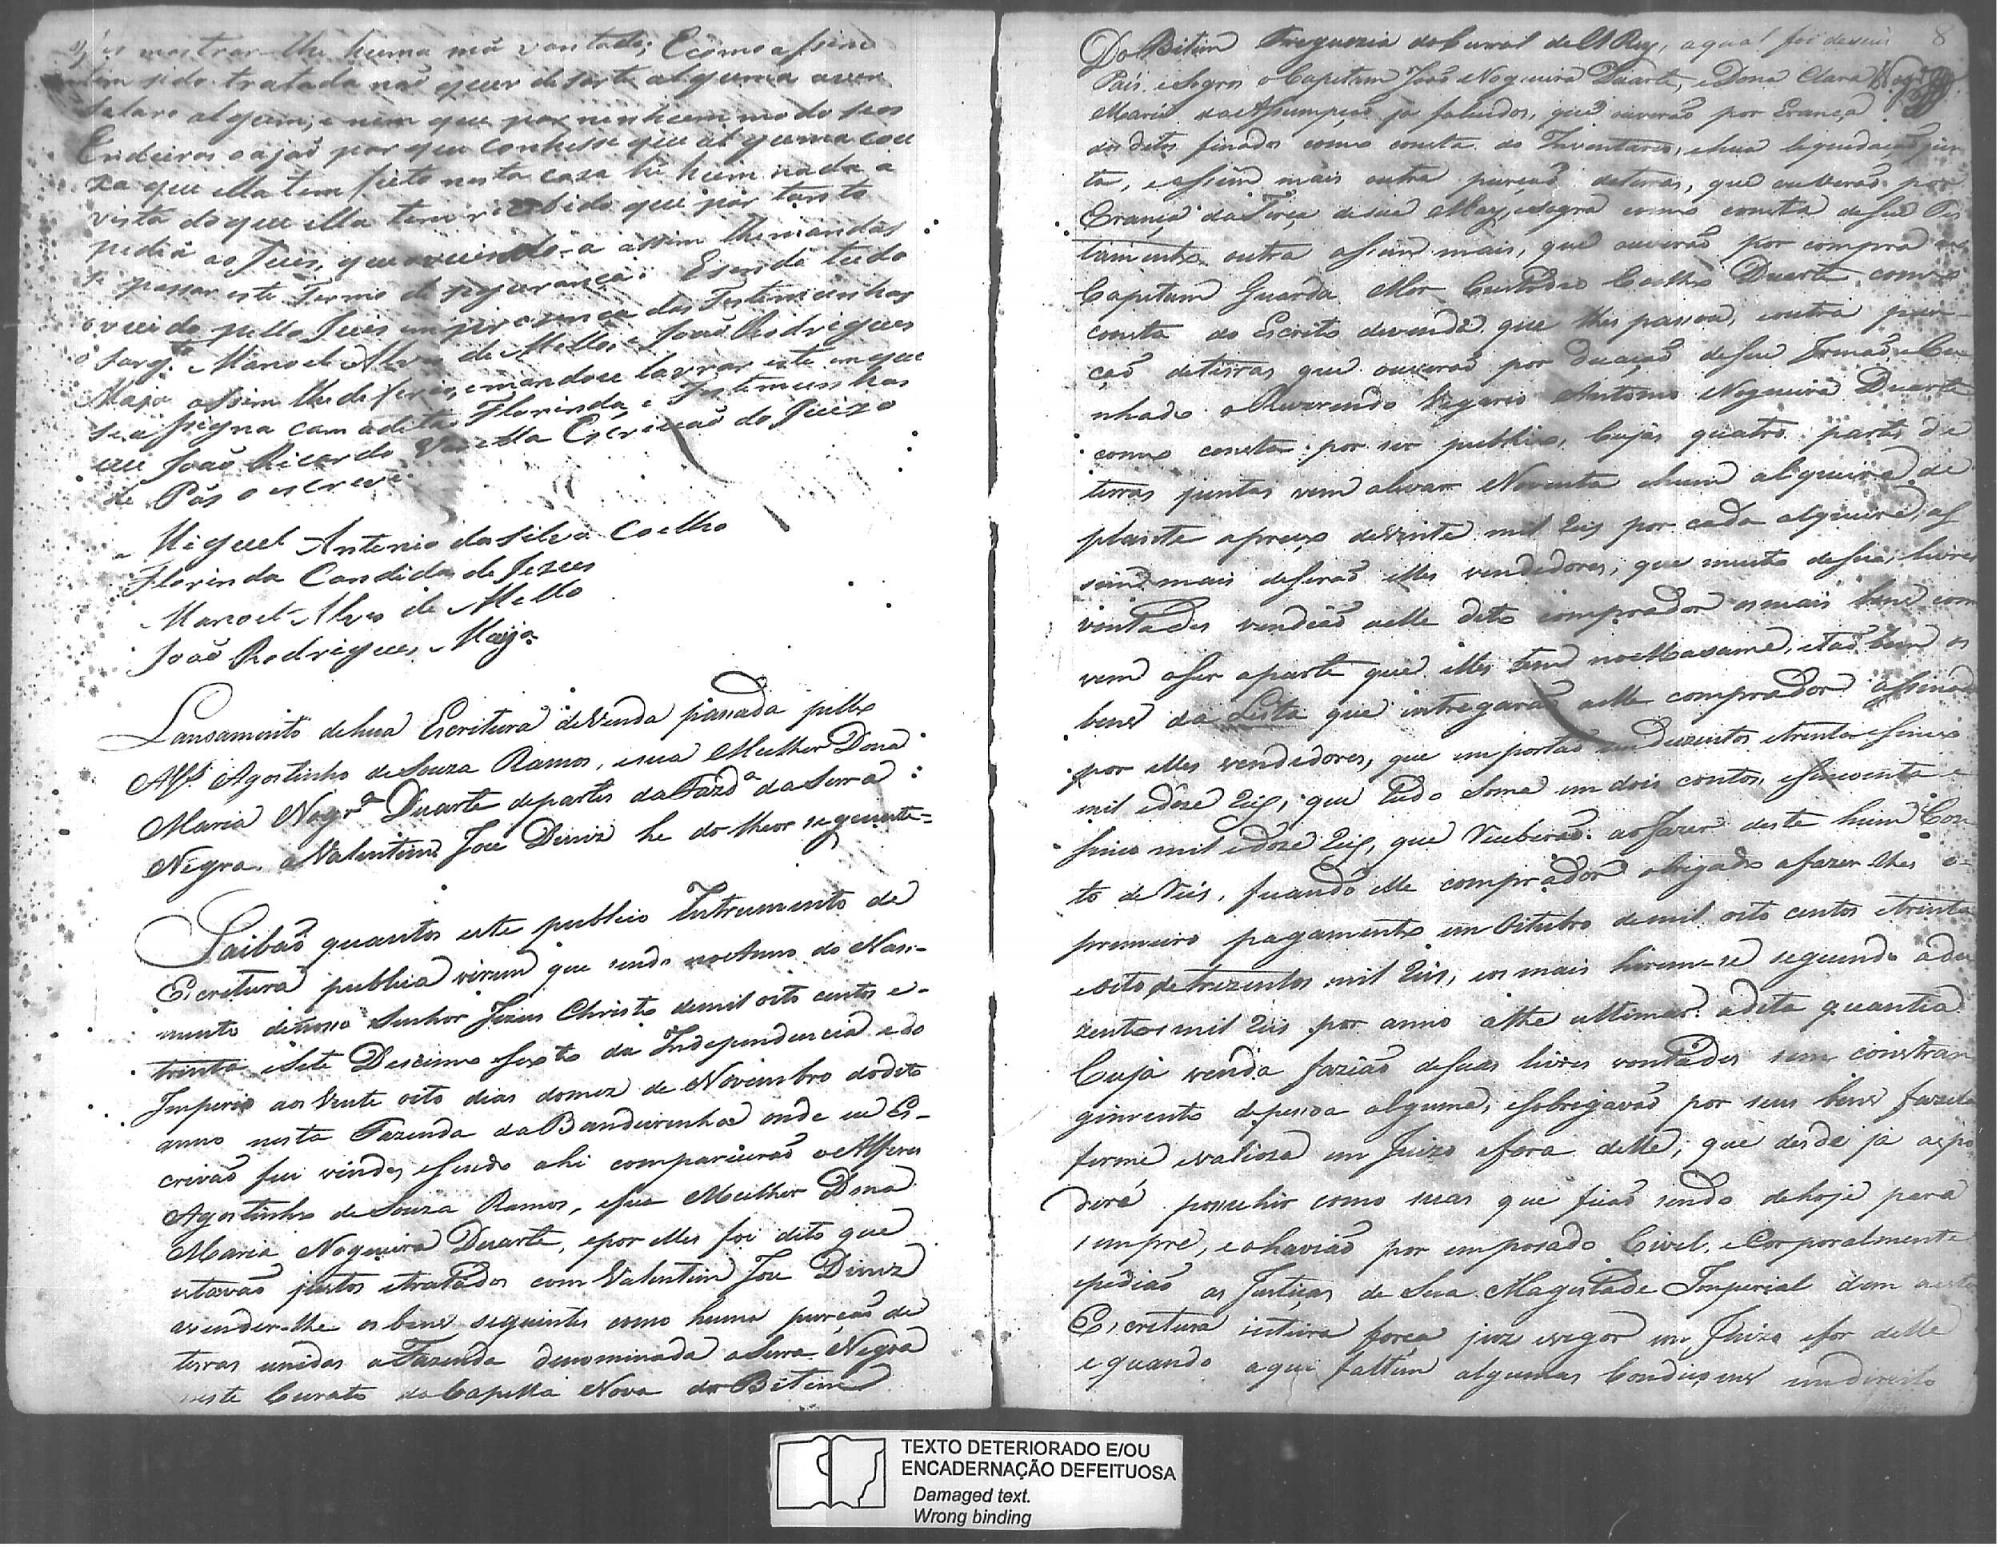 mostrar lhe huma má vontade; E como assim
tem sido tratada não quer de sorte alguma aver
Salario algum, e nem que por nenhum modo seos
Erdeiros o ajão por que confesse que alguma cou
za que ella tem feito nesta caza he hum nada a
vista do que ella tem recebido que por tanto
pedia ao Juis, que ouvindo-a assim lhe mandas
se passar este Termo de siguranca: E sendo tudo
ouvido pello Juis em prezença das Testemunhas
o Sargto. Manoel Alves de Mello, e João Rodrigues
Maja assim lhe deferio, e mandou lavrar este em que
se assigna com a dita Florinda, e Testemunhas
eu João Ricardo Varella Escrivão do Juizo
de Pás o escrevi
Miguel Antonio da Silva Coelho
Florinda Candida de Jezus
Manoel Alves de Mello
João Rodrigues Maja
Lansamento de hua Escritura de Venda passada pello
Alfs. Agostinho de Souza Ramos, e sua Mulher Dona
Maria Nogra. Duarte de partes da Fazda. da Serra
Negra, a Valentim Joze Diniz he do theor seguinte=
Saibão quantos este publico Instrumento de
Escritura publica virem que sendo no Anno do Nas-
mento de nosso Senhor Jezus Christo de mil oito centos e-
trinta e Sete Descimo Sexto da Independencia e do
Imperio aos Vinte oito dias do mez de Novembro do dito
anno nesta Fazenda da Bandeirinha onde eu Es-
crivão fui vindo, e sendo ahi comparicerão o Alferes
Agostinho de Souza Ramos, e sua Mulher Dona
Maria Nogueira Duarte, e por elles foi dito que
estavão justos e tratados com Valentim Joze Diniz
a vender-lhe os bens seguintes como huma porção de
terras unidas a Fazenda denominada a Serra Negra
neste Curato da Capella Nova do Bitim
8
Do Bitim Freguezia do Curral de El Rey, a qual foi de seus
Pais, e Sogros o Capitam João Nogueira Duarte, e Dona Clara
Maria da Assumpção ja falecidos, que ouverão por Erança
dos ditos finados como consta do Inventario, e hua liquidação jun
ta, e assim mais outra porção de terras, que ouverão por
Erança da Terça de sua May, e Sogra como consta de seu Tes
tamento outra assim mais, que ouverão por compra ao
Capitam Guarda Mor Custodio Coelho Duarte como
consta do Escrito de venda que lhes passou, e outra por-
ção de terras que ouverão por Duação de seu Irmão e Cu-
nhado o Reverendo Vigario Antonio Nogueira Duarte
como consta por ser publico, Cujas quatro partes de
terras juntas vem a levar Noventa e hum alqueire de
plante a preço de Vinte mil Reis por cada alqueire, as
sim mais diserão elles vendedores, que muito de suas livres
vontades vendião a elle dito comprador os mais bens com
vem a ser a parte que elles tem no Masame, e tão bem os
bens da Lista que intregarão a elle comprador assinada
por elles vendedores, que importão em duzentos e trinta e sinco
mil e doze Reis, que tudo Soma em dois contos, e sincoenta e
sinco mil e doze Reis, que Receberão ao fazer deste hum Con
to de Reis, ficando elle comprador obrigado a fazer lhes o-
primeiro pagamento em Oitubro de mil oito centos e trinta
e oito de trezentos mil Reis, e os mais hirem-se seguindo a du
zentos mil Reis por anno athe ultimar a dita quantia
Cuja venda fazião de suas livres vontades sem constran
gimento de pessoa alguma, e sobrigavão por seus bens fazela
firme e valiosa em Juizo e fora delle, que desde ja a
derá possuhir como suas que ficão sendo de hoje para
sempre, e o havião por empossado Civel, e Corporalmente
e pedião as Justiças de Sua Magestade Imperial dem a esta
Escritura inteira força e vigor em Juizo e for delle
e quando aqui faltem algumas Condiçoens em direito
TEXTO DETERIORADO E/OU
ENCADERNAÇÃO DEFEITUOSA
Damaged text.
Wrong binding